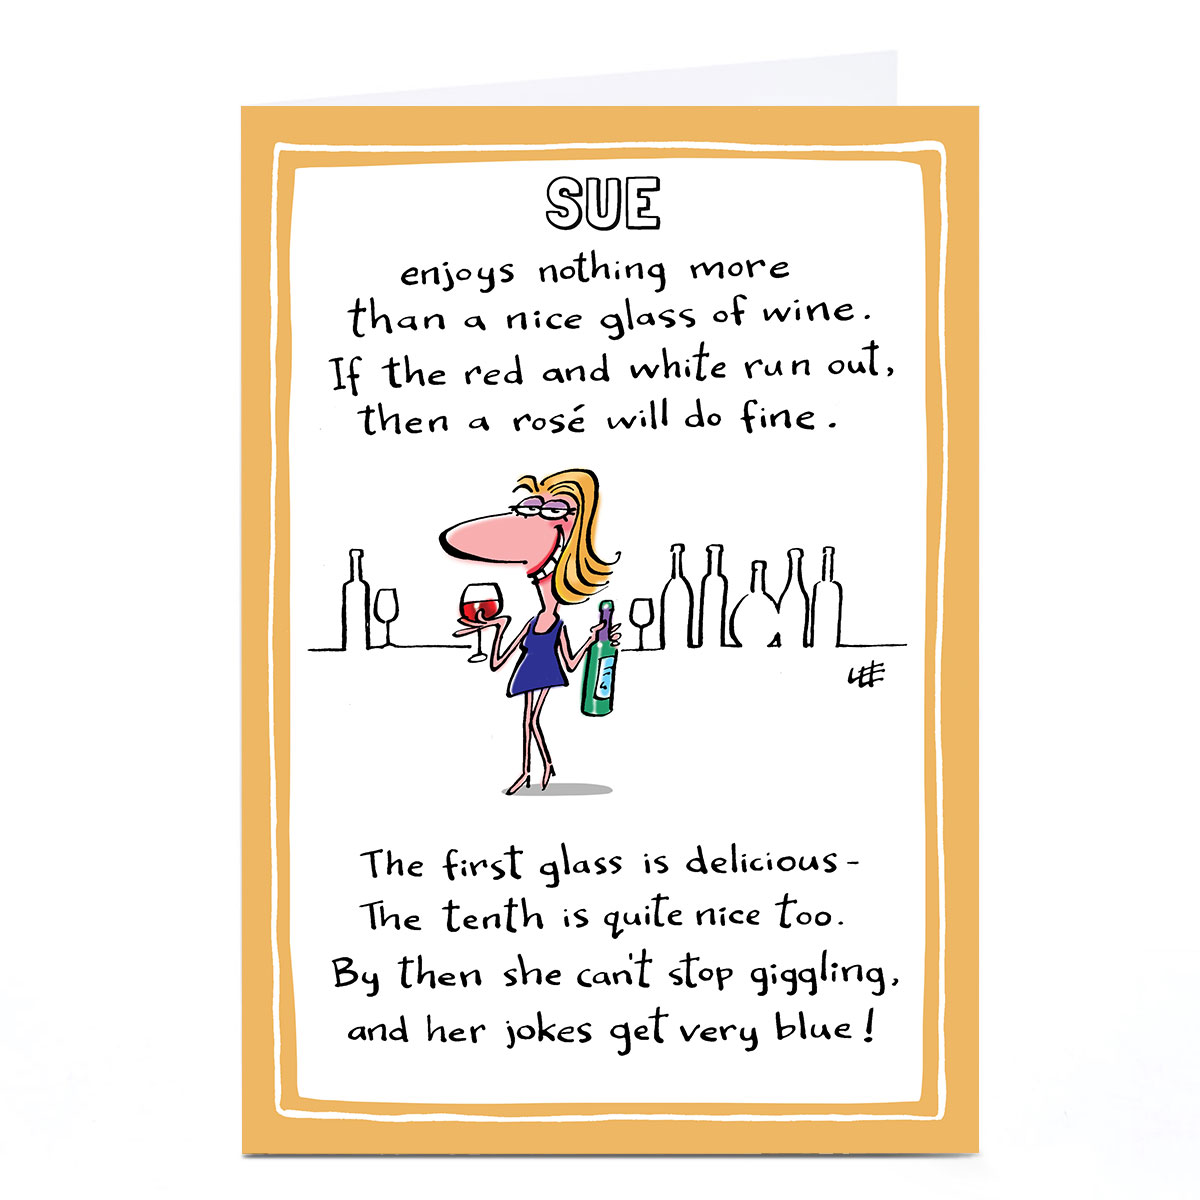 SUE
enjoys nothing more
than a nice glass of wine.
If the red and white run out,
then a rosé will do fine.
LEE
The first glass is delicious -
The tenth is quite nice too.
By then she can't stop giggling,
and her jokes get very blue!